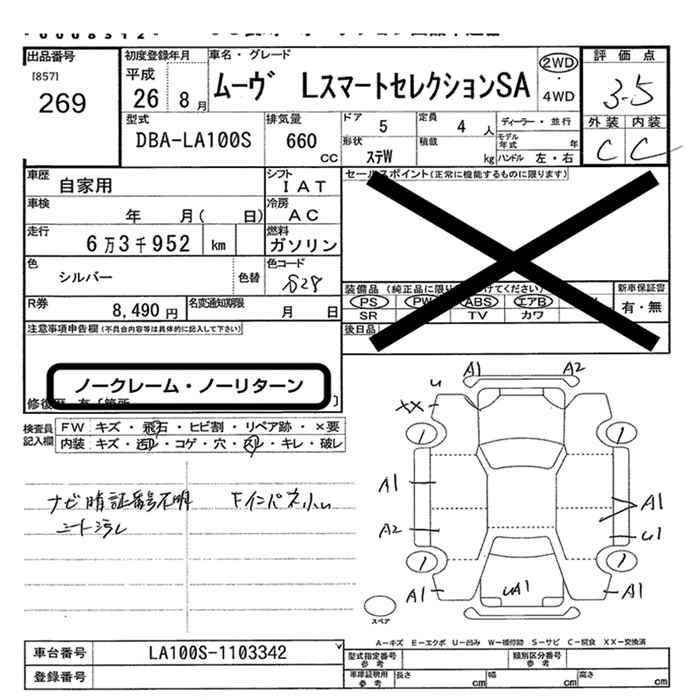 出品番号
[857]
269
初度登録年月
平成
26 8月
車名・グレード
ムーヴ LスマートセレクションSA
2WD
・
4WD
評価点
3.5
外装 内装
C C
型式
DBA-LA100S
排気量
660
cc
ドア 5
定員 4 人
ディーラー・並行
モデル年式 年
形状
ステW
積載 kg
ハンドル 左・右
車歴
自家用
シフト
IAT
車検
年 月( 日)
冷房
AC
走行
6万3千952 km
燃料
ガソリン
色
シルバー
色替
色コード
S28
R券
8,490円
名変通知期限
月 日
セールスポイント(正常に機能するものに限ります)
装備品(純正品に限り
てください)
新車保証書
有・無
PS PW ABS エアB
SR TV カワ
後日品
注意事項申告欄(不具合内容等は具体的に記入して下さい)
ノークレーム・ノーリターン
修復歴 有
検査員記入欄
FW キズ・飛石・ヒビ割・リペア跡・×要
内装 キズ・ ・コゲ・穴・ ・キレ・破レ
ナビ暗証番号不明
Fインパネ小
A1 A2
U
XX
A1
A2
A1
U1
A1
UA1
A1
スペア
A-キズ E-エクボ U-凹み W-補修跡 S-サビ C-腐食 XX-交換済
車台番号
LA100S-1103342
登録番号
型式指定番号
参考
類別区分番号
参考
車庫証明用
参考
長さ cm
幅 cm
高さ cm